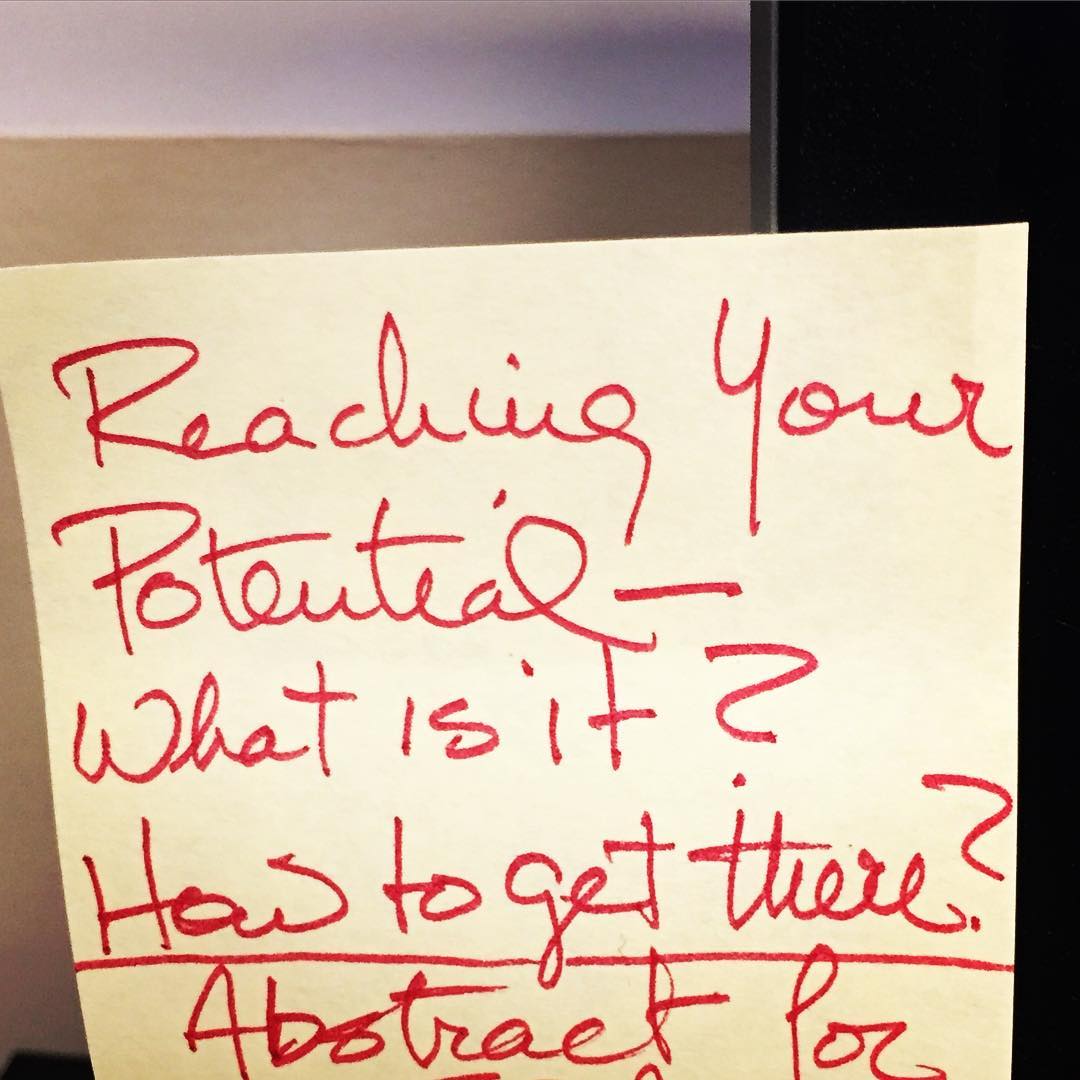 Reaching Your
Potential —
What is it?
How to get there?
Abstract for